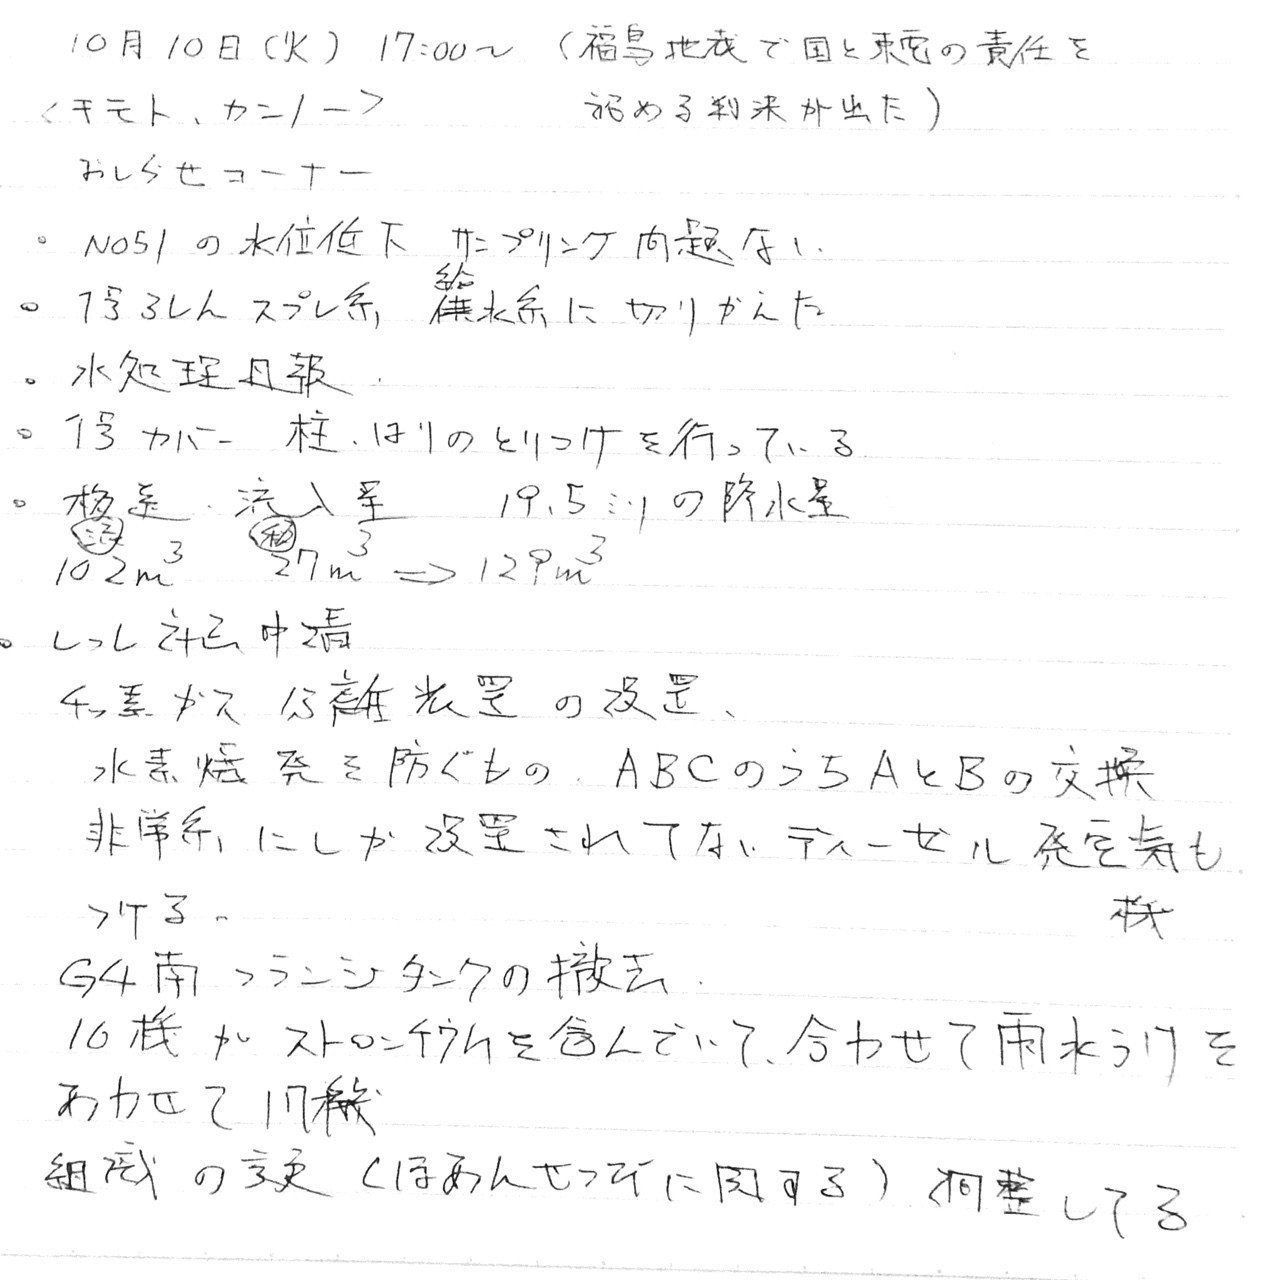 10月10日(火) 17:00～ (福島地裁で国と東電の責任を
<キモト、カンノー> 認める判決が出た)
おしらせコーナー
・NO51の水位低下 サンプリング 問題ない.
・1号ろしんスプレ系, 給水系に切りかえた
・水処理月報.
・1号カバー 柱.はりのとりつけを行っている
・移送.流入量 19.5ミリの降水量
102m³ 27m³ ⇒ 129m³
・じっし計画申請
チッ素ガス分離装置の設置、
水素爆発を防ぐもの. ABCのうちAとBの交換
非常系にしか設置されてないディーゼル発電気も
機
つける.
G4南フランジタンクの撤去.
16機がストロンチウムを含んでいて、合わせて雨水うけを
あわせて17機
組織の変更(ほあんせつびに関する) 調整してる